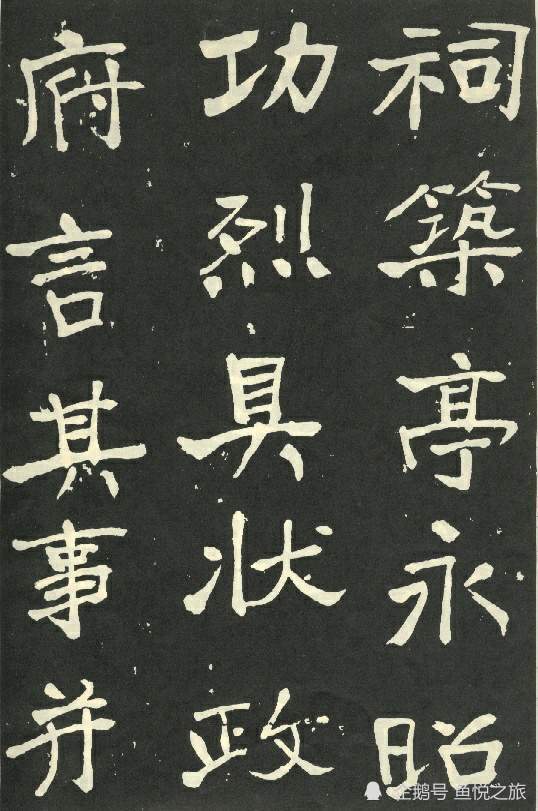 祠築亭永昭
功烈具状政
府言其事并
企鹅号 鱼悦之旅